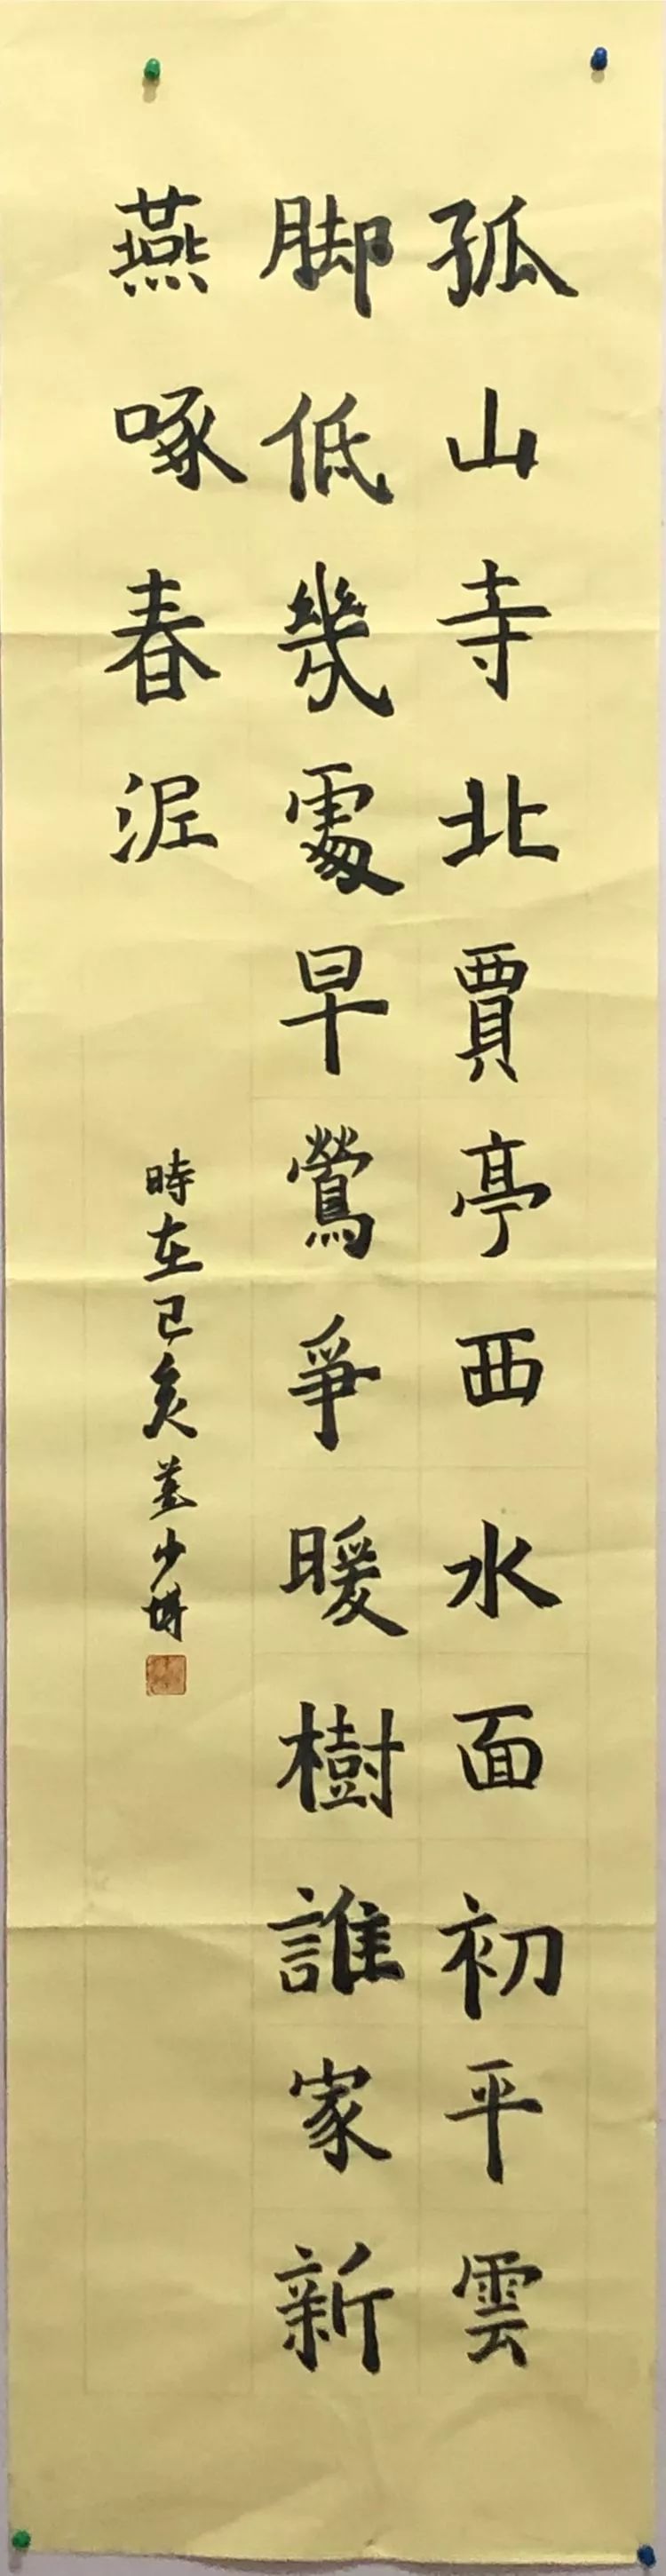 孤山寺北賈亭西水面初平雲
脚低幾處早鶯爭暖樹誰家新
燕啄春泥
時在己亥 少博